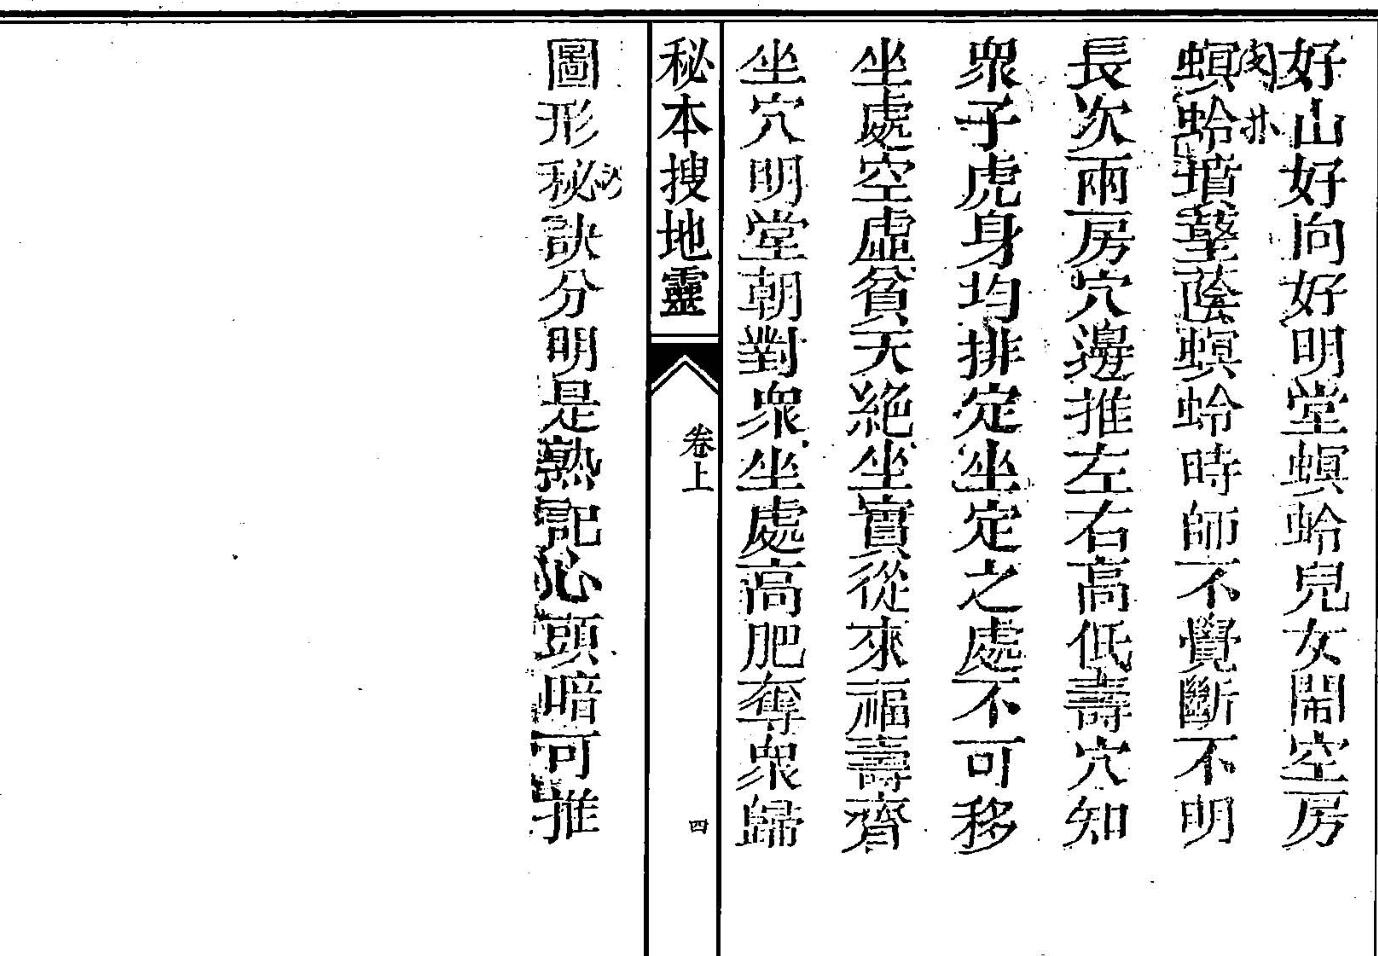 好山好向好明堂螟蛉兒女鬧空房
螟蛉墳塋蔭螟蛉時師不覺斷不明
長次兩房穴邊推左右高低壽穴知
衆子虎身均排定坐定之處不可移
坐處空虛貧夭絕坐實從來福壽齊
坐穴明堂朝對衆坐處高肥奪衆歸
秘本搜地靈
卷上
四
圖形秘訣分明是熟記心頭暗可推